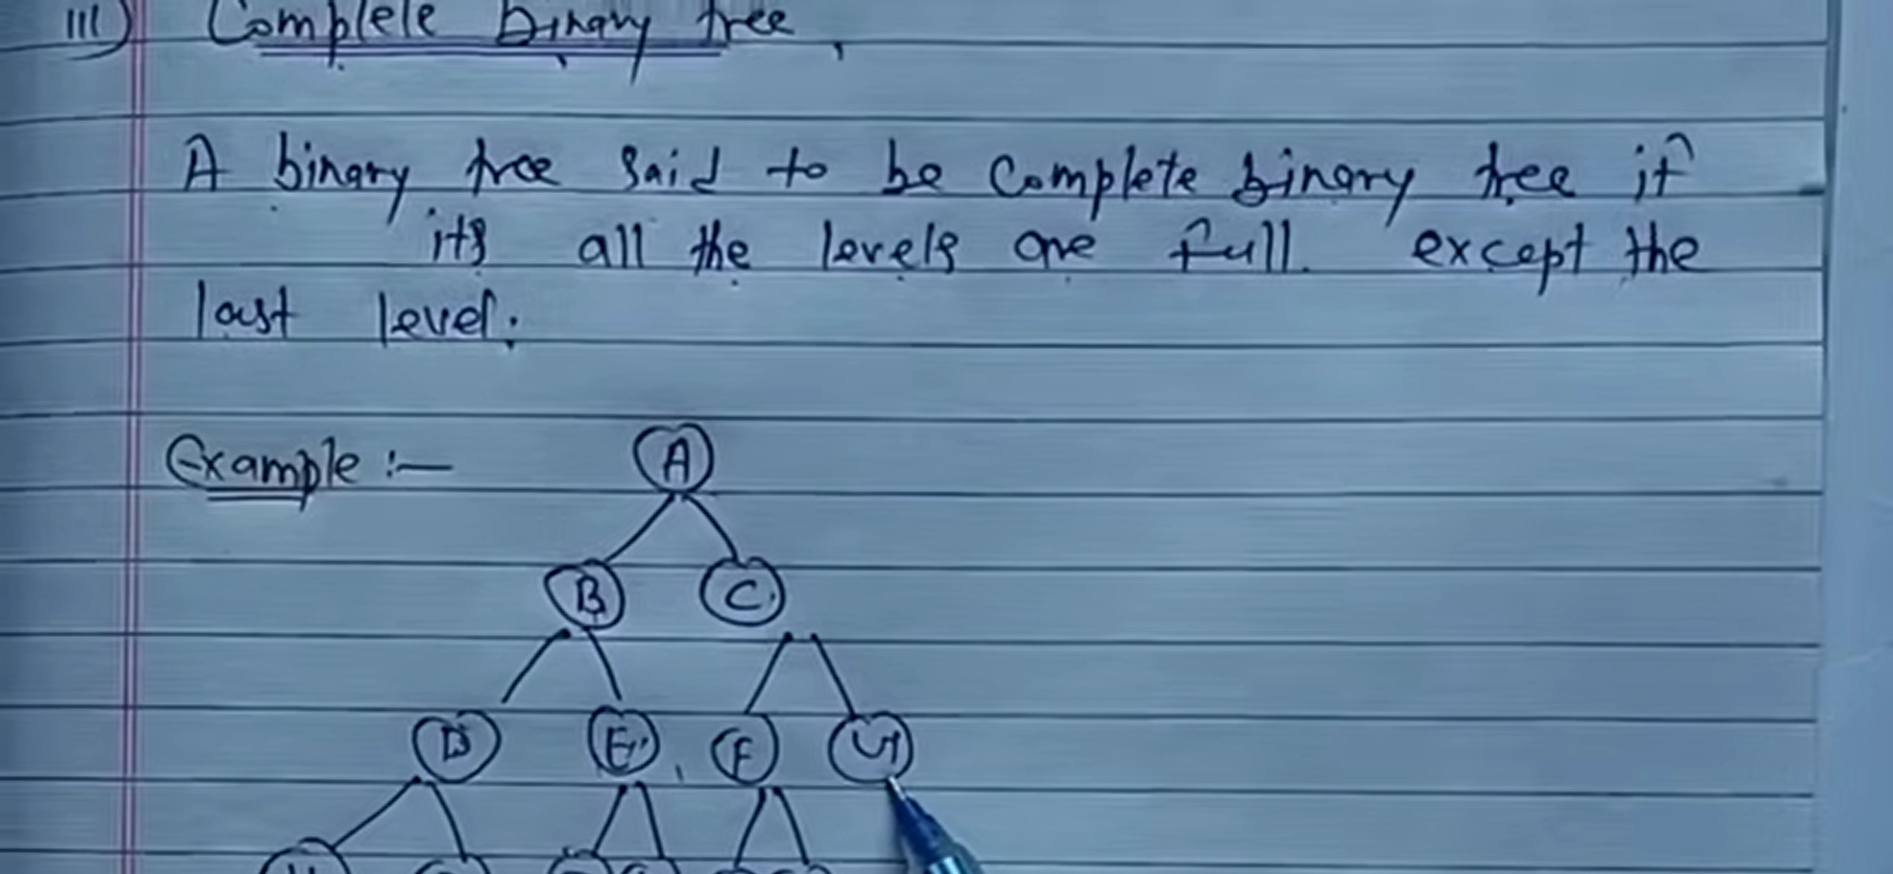 III) Complete binary tree,
A binary tree said to be Complete binary tree if
its all the levels are full. except the
last level.
Example :—
A
B C
D E F G
H